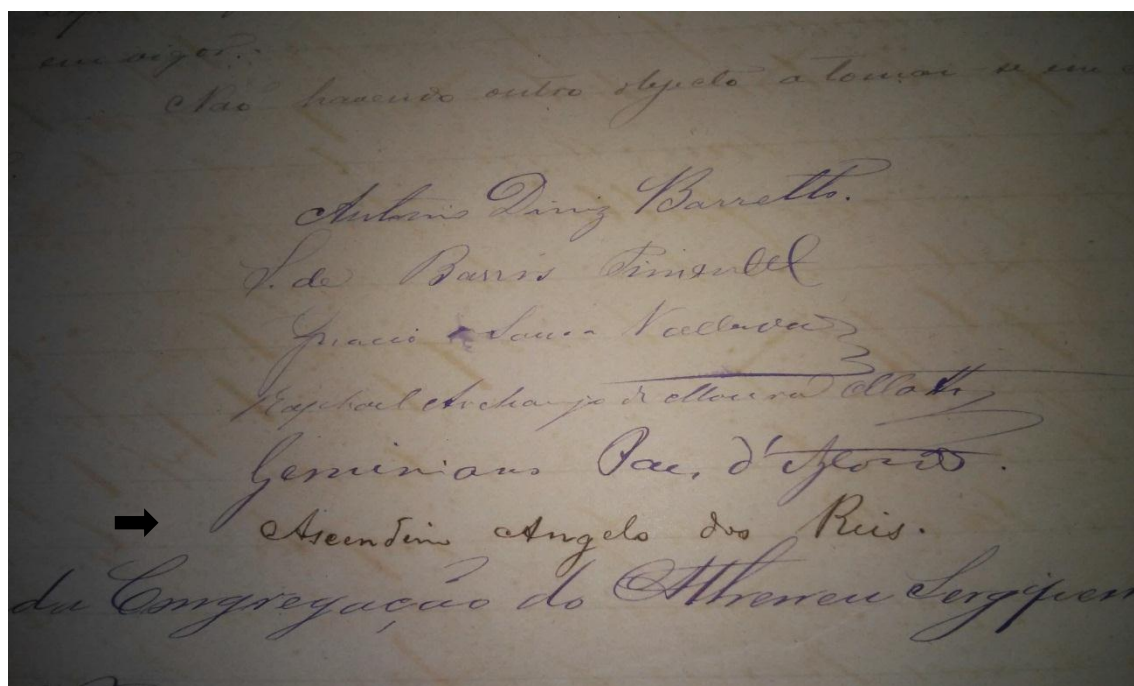 em vigor.
Não havendo outro objecto a tomar se em
Antonio Diniz Barretto.
S. de Barros Pimentel
Ignacio de Souza Valladão
Raphael Archanjo de Moura Mattos
Geminiano Paes d'Azevedo.
Ascendino Angelo dos Reis.
da Congregação do Atheneu Sergipen